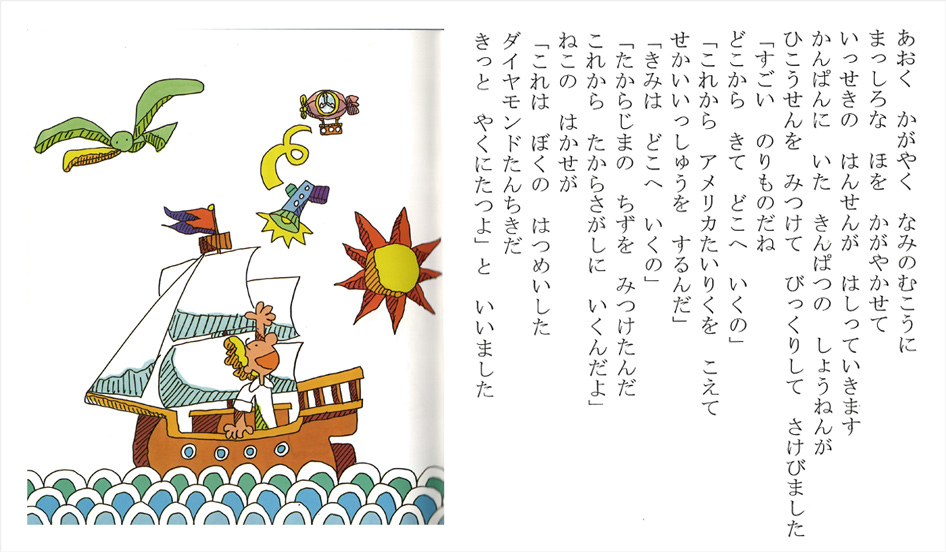 あおく　かがやく　なみのむこうに
まっしろな　ほを　かがやかせて
いっせきの　はんせんが　はしっていきます
かんぱんに　いた　きんぱつの　しょうねんが
ひこうせんを　みつけて　びっくりして　さけびました
「すごい　のりものだね
どこから　きて　どこへ　いくの」
「これから　アメリカたいりくを　こえて
せかいいっしゅうを　するんだ」
「きみは　どこへ　いくの」
「たからじまの　ちずを　みつけたんだ
これから　たからさがしに　いくんだよ」
ねこの　はかせが
「これは　ぼくの　はつめいした
ダイヤモンドたんちきだ
きっと　やくにたつよ」と　いいました